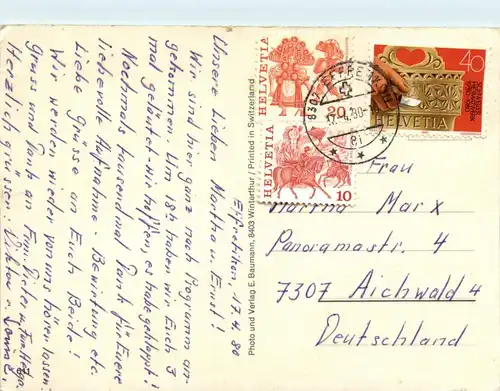 Effretikon, 17.4.80
Unsere lieben Martha u. Ernst!
Wir sind hier ganz nach Programm an-
gekommen. Um 18h haben wir Euch 3
mal geläutet - wir hoffen, es habe geklappt!
Nochmals tausendmal Dank für Euere
liebevolle Aufnahme - Bewirtung etc.
Liebe Grüsse an Euch Beide!
Wir werden wieder von uns hören lassen.
Gruss und Dank an Fam.
Herzlich grüssen:
Photo und Verlag E. Baumann, 8403 Winterthur / Printed in Switzerland
HELVETIA
20
HELVETIA
10
40
HELVETIA
8307 EFFRETIKON
17.4.80
81
Frau
Marx
Panoramastr. 4
7307 Aichwald 4
Deutschland